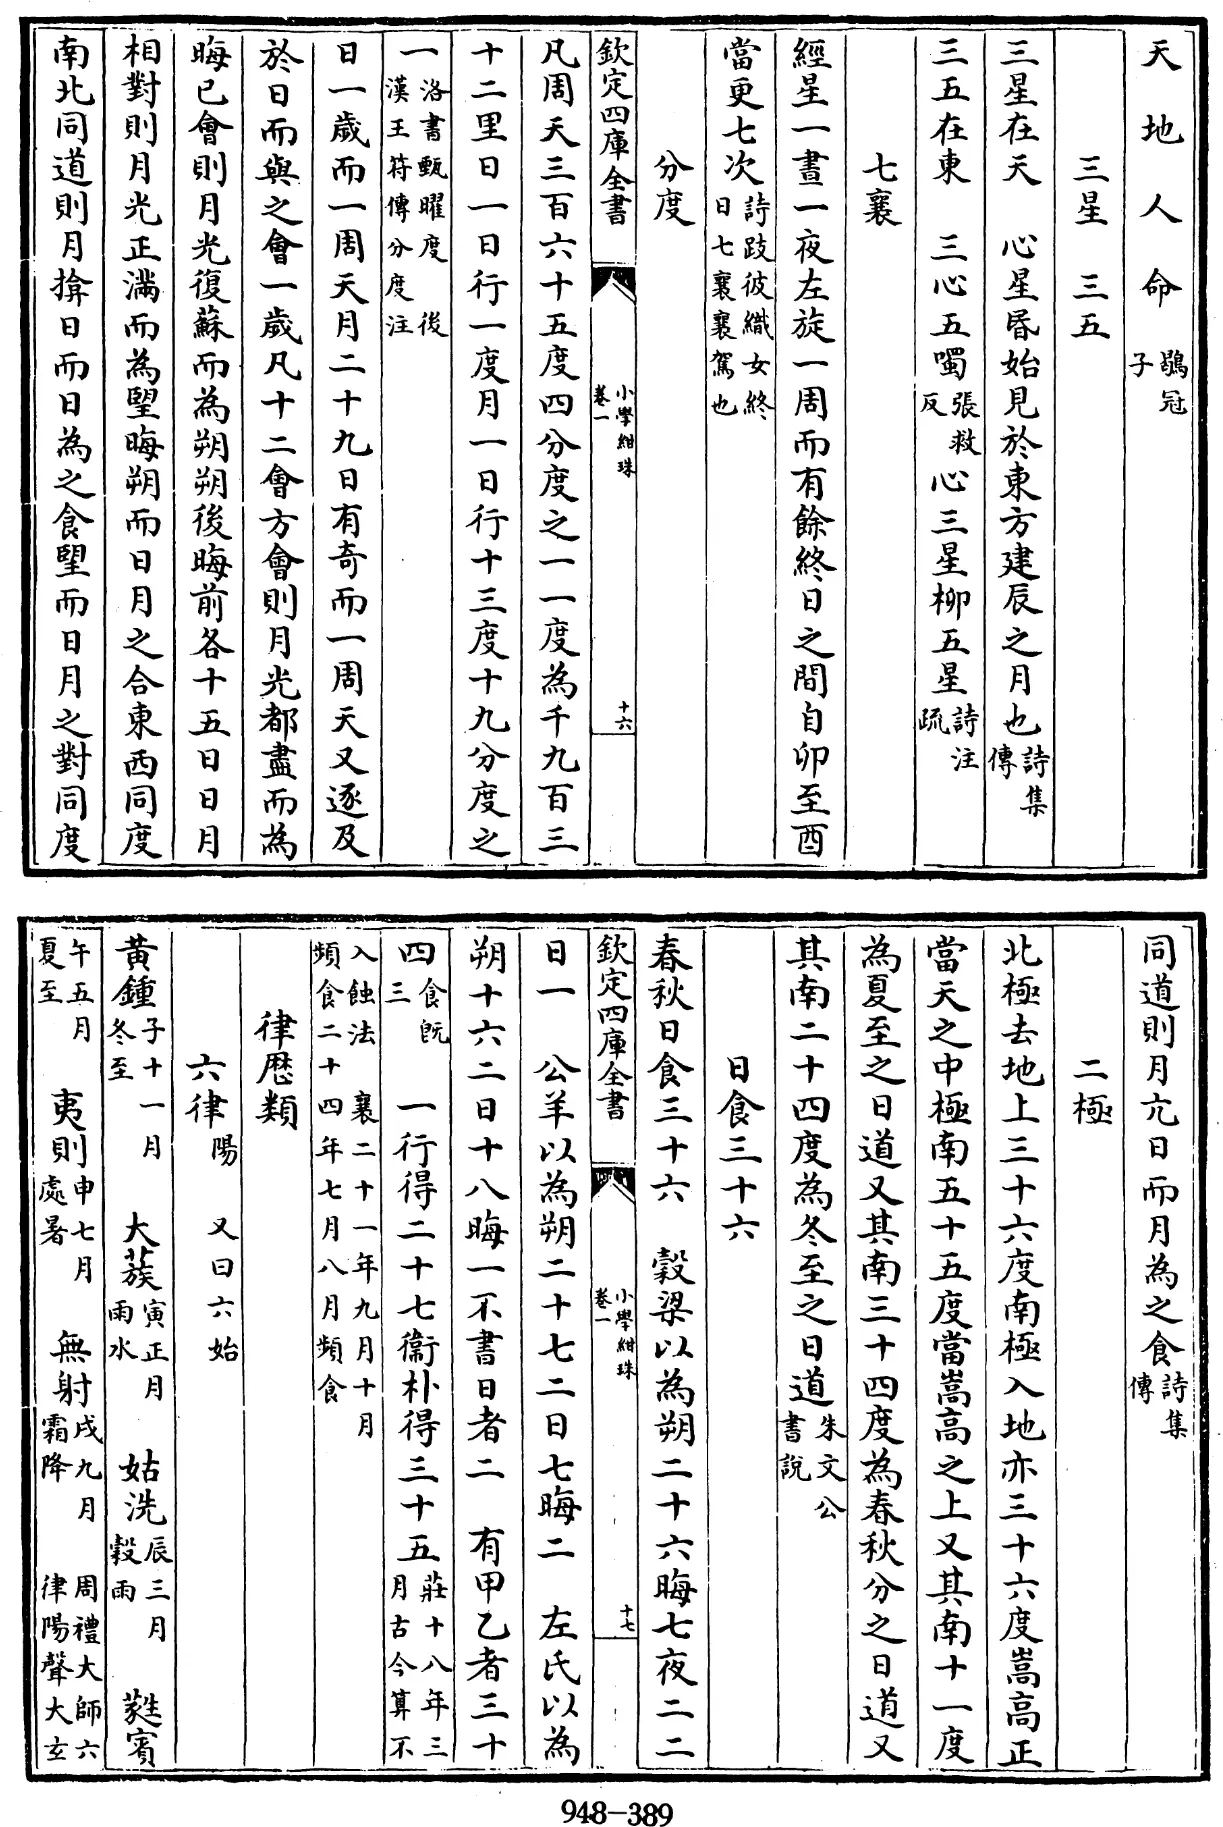 天地人命鶡冠子
三星　三五
三星在天　心星昏始見於東方建辰之月也詩集傳
三五在東　三心五噣張救反心三星柳五星詩注疏
七襄
經星一晝一夜左旋一周而有餘終日之間自卯至酉
當更七次詩跂彼織女終日七襄襄駕也
分度
欽定四庫全書
小學紺珠
卷一
十六
凡周天三百六十五度四分度之一一度為千九百三
十二里日一日行一度月一日行十三度十九分度之
一洛書甄曜度　後漢王符傳分度注
日一歲而一周天月二十九日有奇而一周天又逐及
於日而與之會一歲凡十二會方會則月光都盡而為
晦已會則月光復蘇而為朔朔後晦前各十五日日月
相對則月光正滿而為望晦朔而日月之合東西同度
南北同道則月揜日而日為之食望而日月之對同度
同道則月亢日而月為之食詩集傳
二極
北極去地上三十六度南極入地亦三十六度嵩高正
當天之中極南五十五度當嵩高之上又其南十一度
為夏至之日道又其南三十四度為春秋分之日道又
其南二十四度為冬至之日道朱文公書說
日食三十六
春秋日食三十六　穀梁以為朔二十六晦七夜二二
欽定四庫全書
小學紺珠
卷一
十七
日一　公羊以為朔二十七二日七晦二　左氏以為
朔十六二日十八晦一不書日者二　有甲乙者三十
四食旣三　一行得二十七衞朴得三十五莊十八年三月古今算不
入蝕法　襄二十一年九月十月頻食二十四年七月八月頻食
律厯類
六律陽　又曰六始
黃鍾子十一月冬至　大蔟寅正月雨水　姑洗辰三月穀雨　蕤賓
午五月夏至　夷則申七月處暑　無射戌九月霜降　周禮大師六律陽聲大玄
948-389